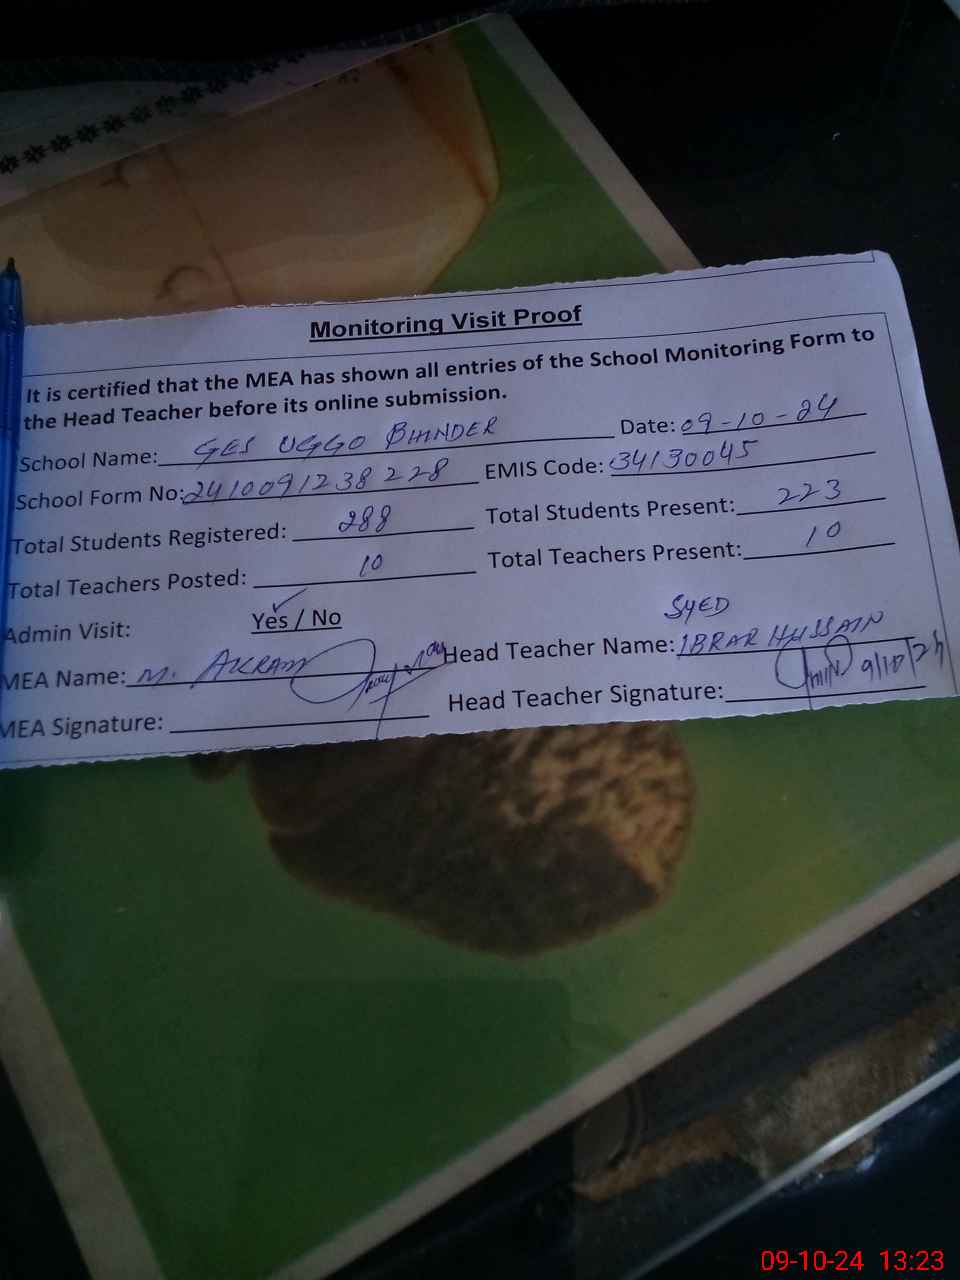 Monitoring Visit Proof
It is certified that the MEA has shown all entries of the School Monitoring Form to
the Head Teacher before its online submission.
School Name: GES UGGO BHINDER Date: 09-10-24
School Form No: 2410091238228 EMIS Code: 34130045
Total Students Registered: 288 Total Students Present: 223
Total Teachers Posted: 10 Total Teachers Present: 10
Admin Visit: Yes / No
MEA Name: M. AKRAM Head Teacher Name: SYED IBRAR HUSSAIN
MEA Signature: Head Teacher Signature: 9/10/24
09-10-24 13:23